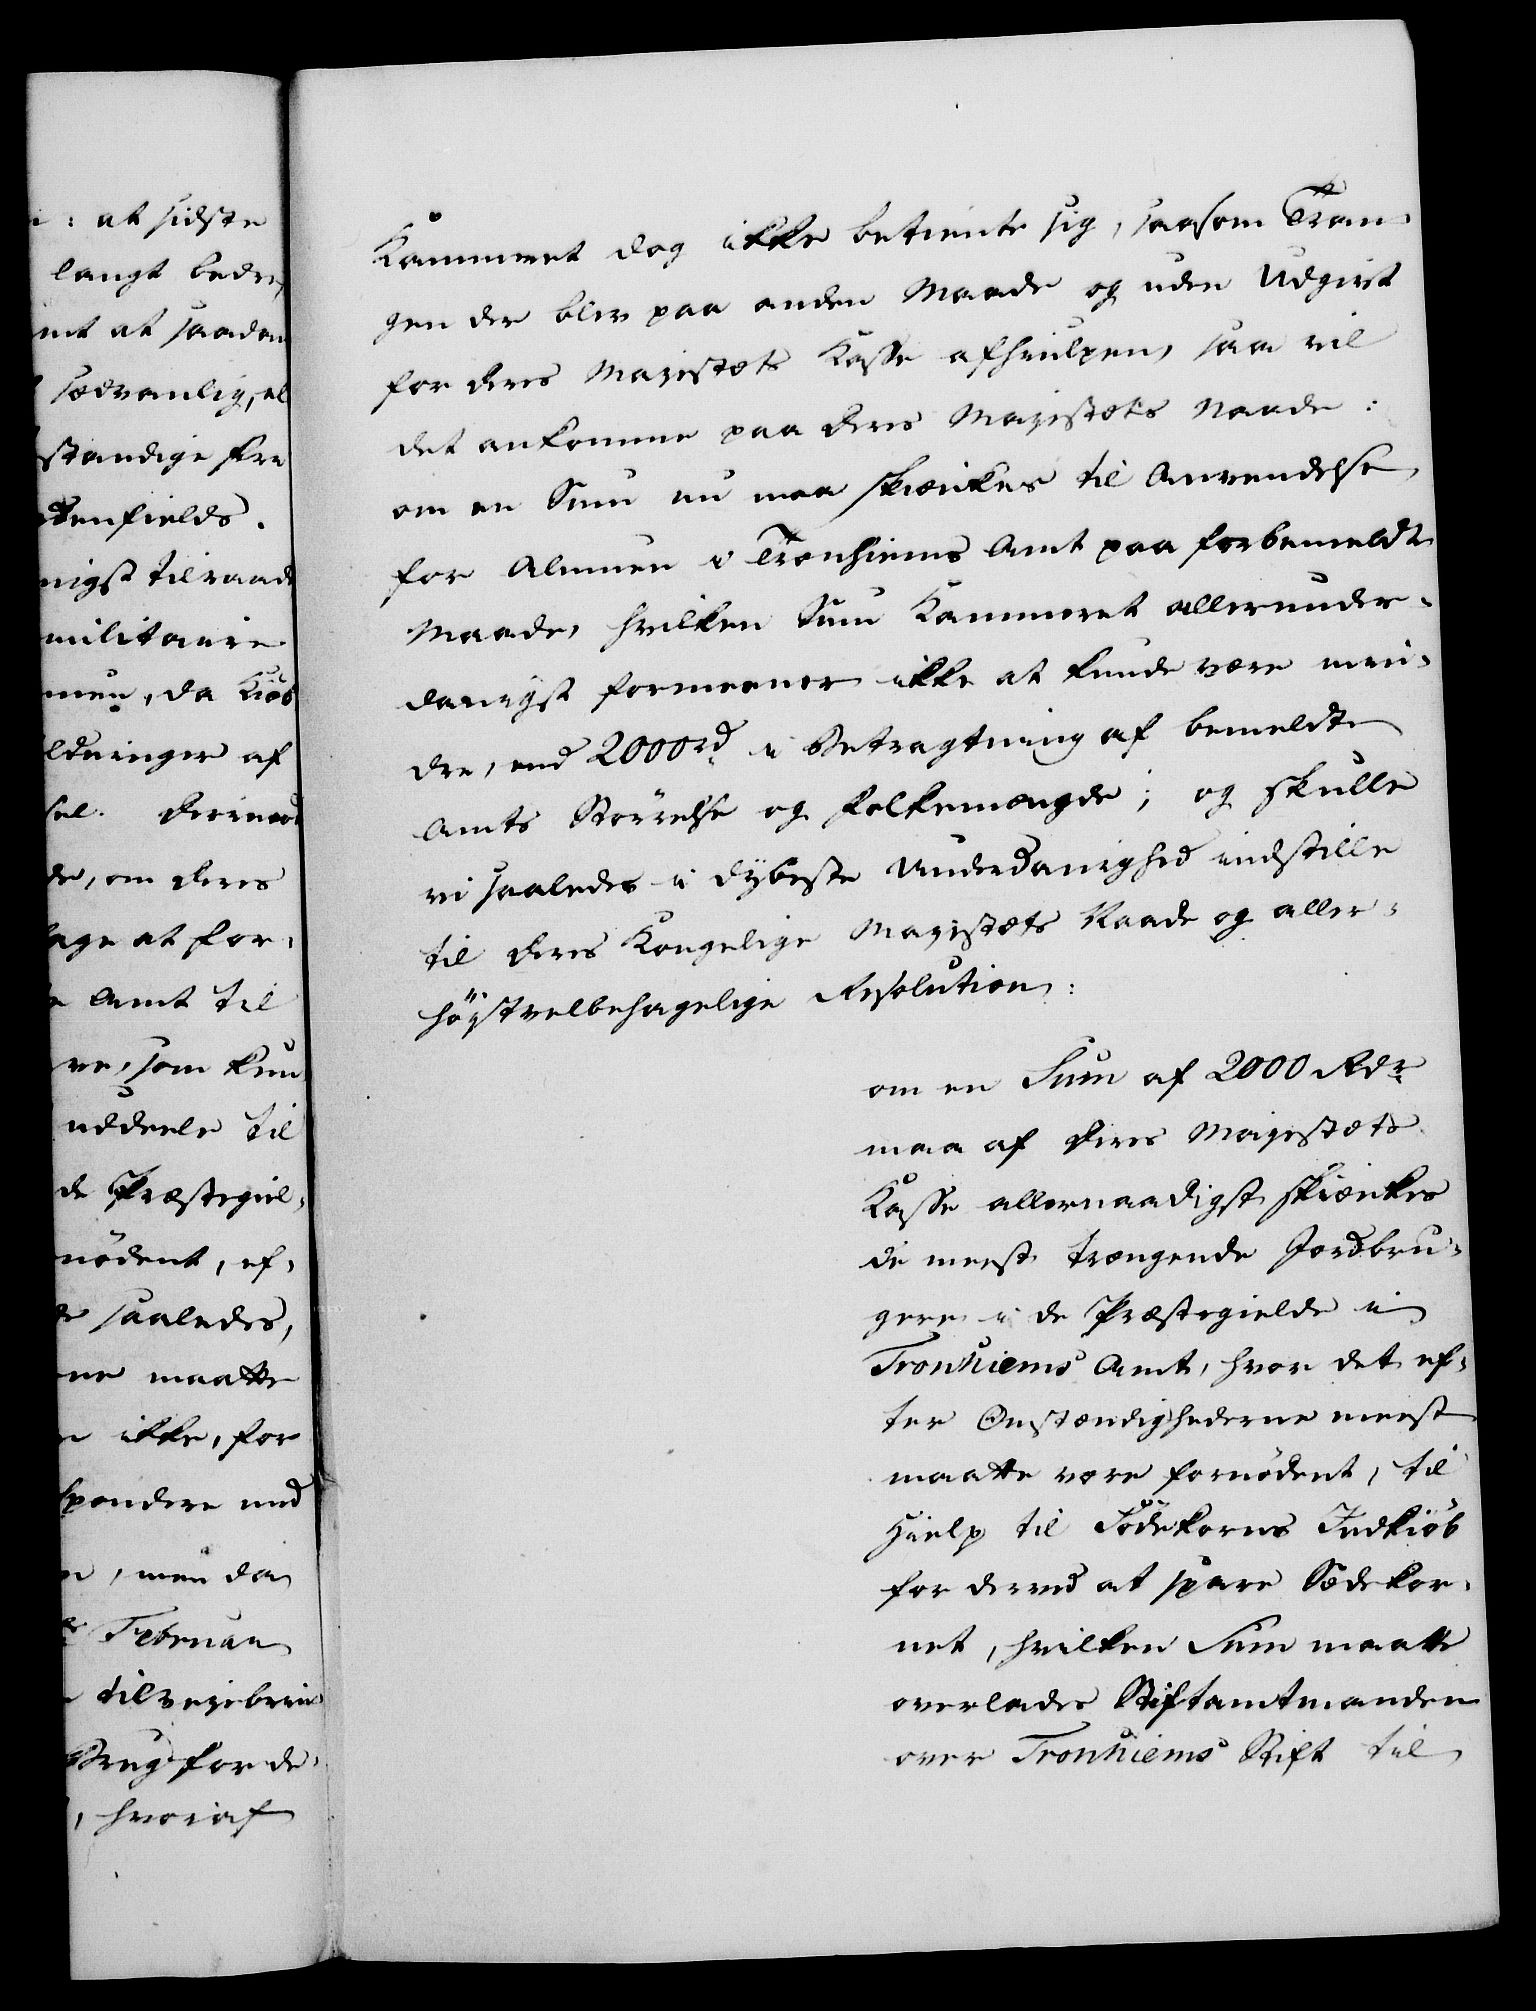 : at sidste
langt bedre,
mt at saadan
sædvanlig, el
standige fra
denfields.
nigst tilraade
militaire
mun, da Kiöb
ldninger af
sel. Derimod
de, om Deres
age at for-
e Amt til
re, som kun
uddeele til
de Præstegiel-
nödent, ef-
saaledes,
ne maatte
ikke, for
spondere med
, men da
Februar
tilveyebrin
Brug for de-
, hvoraf
Kammeret dog ikke betiente sig, saasom Tran
gen der blev paa anden Maade og uden Udgivt
for Deres Majestæts Kasse afhiulpen, saa vil
det ankomme paa Deres Majestæts Naade:
om en Sum nu maa skienkes til Anvendelse
for Almuen i Tronhiems Amt paa forbemeldte
Maade, hvilken Sum Kammeret allerunder-
danigst formeener ikke at kunde være min-
dre, end 2000 rd i Betragtning af bemeldte
Amts Störrelse og Folkemængde; og skulle
vi saaledes i dybeste Underdanighed indstille
til Deres Kongelige Majestæts Naade og aller-
höystvelbehagelige Resolution:
om en Sum af 2000 Rdr
maa af Deres Majestæts
Kasse allernaadigst skienkes
de meest trængende Jordbru-
gere i de Præstegielde i
Tronhiems Amt, hvor det ef-
ter Omstændighederne meest
maatte være fornödent, til
Hielp til Födekorns Indkiöb
for derved at spare Sædekor-
net, hvilken Sum maatte
overlades Stiftamtmanden
over Tronhiems Stift til